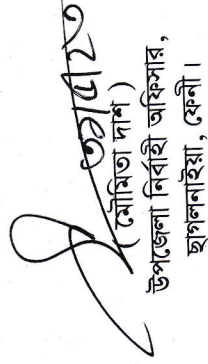 (মৌমিতা দাশ)
উপজেলা নির্বাহী অফিসার,
ছাগলনাইয়া, ফেনী।